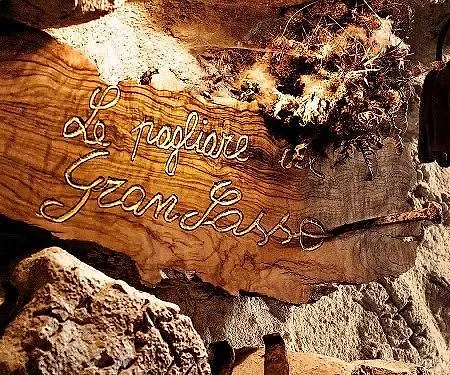 Le pagliare del
Gran Sasso